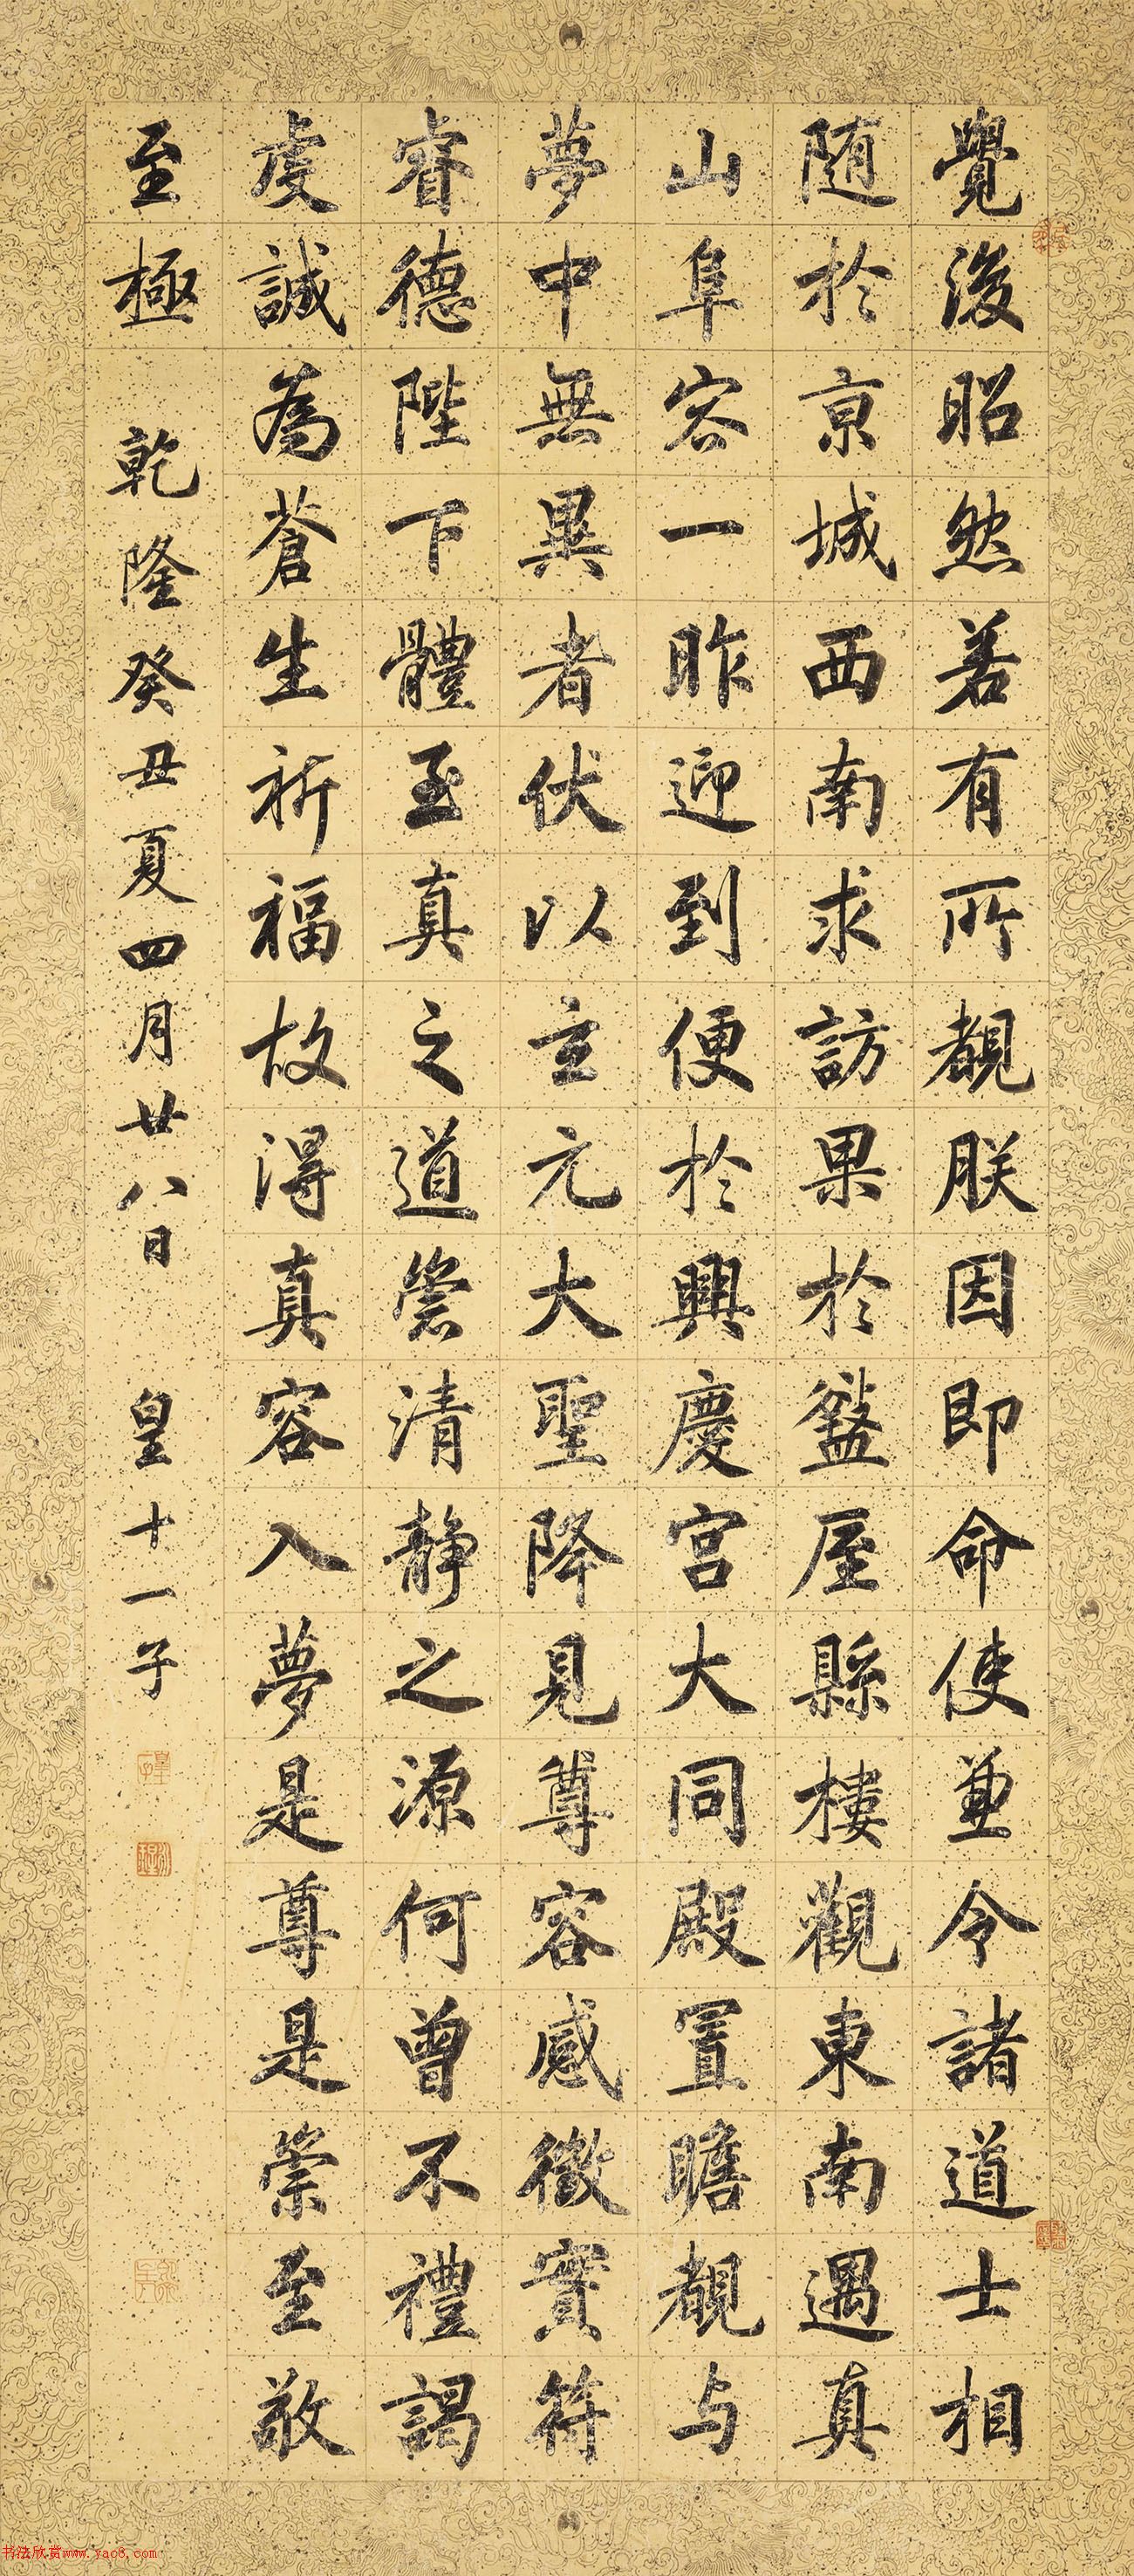 覺後昭然若有所覩朕因即命使兼令諸道士相
随於京城西南求訪果於盩厔縣樓觀東南遇真
山阜容一昨迎到便於興慶宮大同殿置瞻覩与
夢中無異者伏以玄元大聖降見尊容感徵實符
睿德陛下體至真之道崇清静之源何曾不禮謁
虔誠為蒼生祈福故得真容入夢是尊是崇至敬
至極
乾隆癸丑夏四月廿八日 皇十一子
书法欣赏www.yac8.com